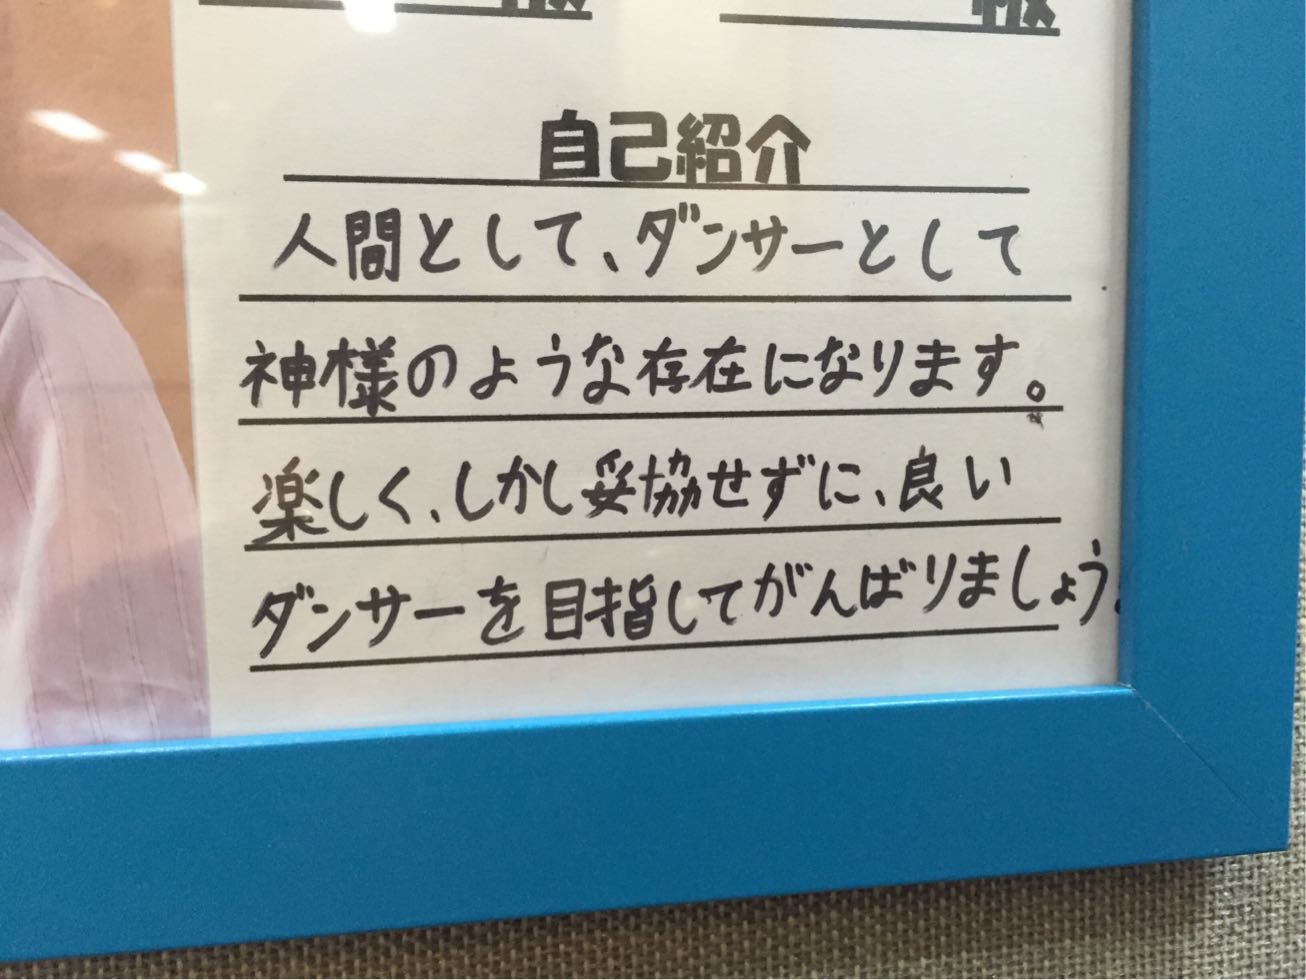 様 様
自己紹介
人間として、ダンサーとして
神様のような存在になります。
楽しく、しかし妥協せずに、良い
ダンサーを目指してがんばりましょう。